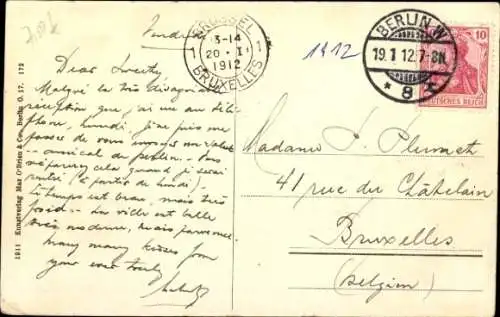 Vendredi
Dear Sweety
Malgré la très désagréable
reception que j'ai eu au télé-
phone lundi, je ne puis me
passer de vous envoyer un
amical de Berlin. Vous
cela quand je serai
rentré (à partir de lundi).
Le temps est beau, mais très
froid. La ville est belle
très moderne, mais
many many kisses from
your ever truly
BRUSSEL
1 3-14 1
20 I
1912
BRUXELLES
1912
BERLIN W
19.1 12.7-8N.
* 8
10
DEUTSCHES REICH
Madame J. Plumach
41 rue du Châtelain
Bruxelles
(Belgien)
1911 Kunstverlag Max O'Brien & Co., Berlin O. 17. 172